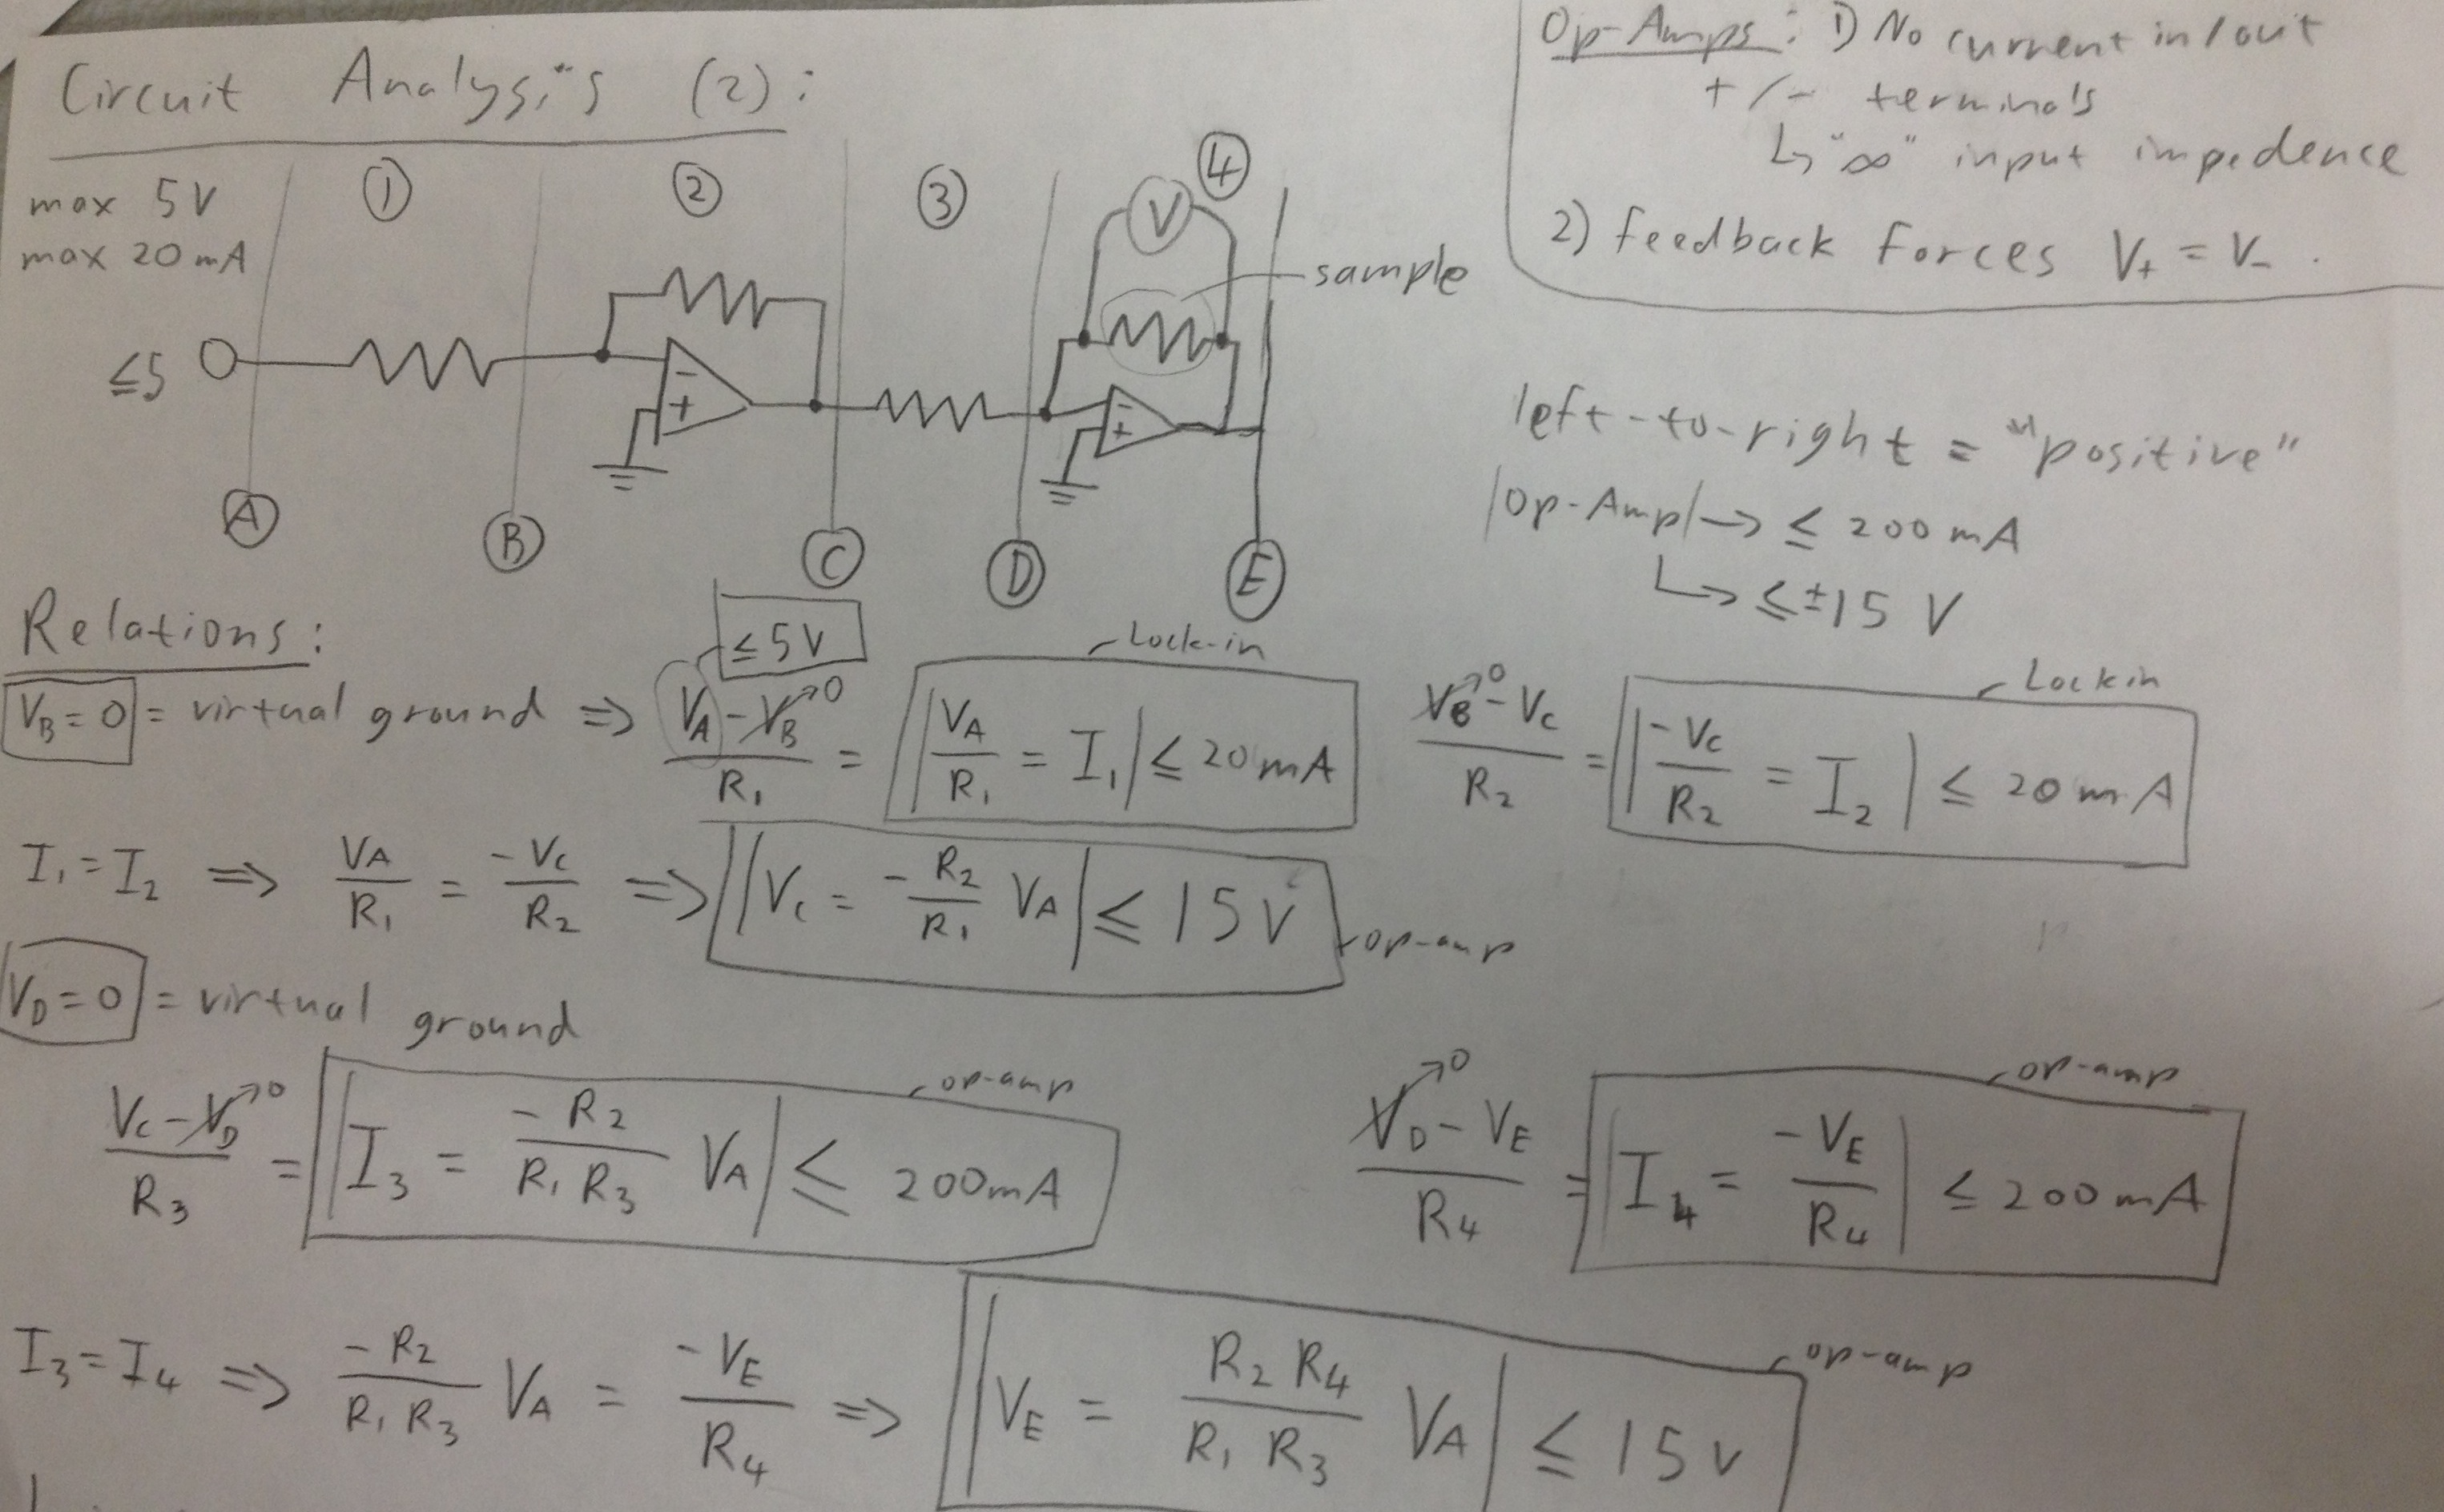 Circuit Analysis (2):
Op-Amps: 1) No current in/out
+/- terminals
↳ "∞" input impedence
2) feedback forces V₊ = V₋ .
max 5V
max 20mA
① ② ③ ④
V
sample
≤5
- +
- +
A B C D E
left-to-right = "positive"
|Op-Amp| → ≤ 200 mA
↳ ≤ ±15 V
Relations:
≤ 5V
Lock-in
Lockin
V_B = 0 = virtual ground ⇒ (V_A - V_B→0)/R₁ = |V_A/R₁ = I₁| ≤ 20mA
(V_B→0 - V_C)/R₂ = |-V_C/R₂ = I₂| ≤ 20mA
I₁ = I₂ ⇒ V_A/R₁ = -V_C/R₂ ⇒ |V_C = -R₂/R₁ V_A| ≤ 15V
op-amp
V_D = 0 = virtual ground
op-amp
op-amp
(V_C - V_D→0)/R₃ = |I₃ = -R₂/(R₁ R₃) V_A| ≤ 200mA
(V_D→0 - V_E)/R₄ = |I₄ = -V_E/R₄| ≤ 200mA
op-amp
I₃ = I₄ ⇒ -R₂/(R₁ R₃) V_A = -V_E/R₄ ⇒ |V_E = R₂ R₄/(R₁ R₃) V_A| ≤ 15V